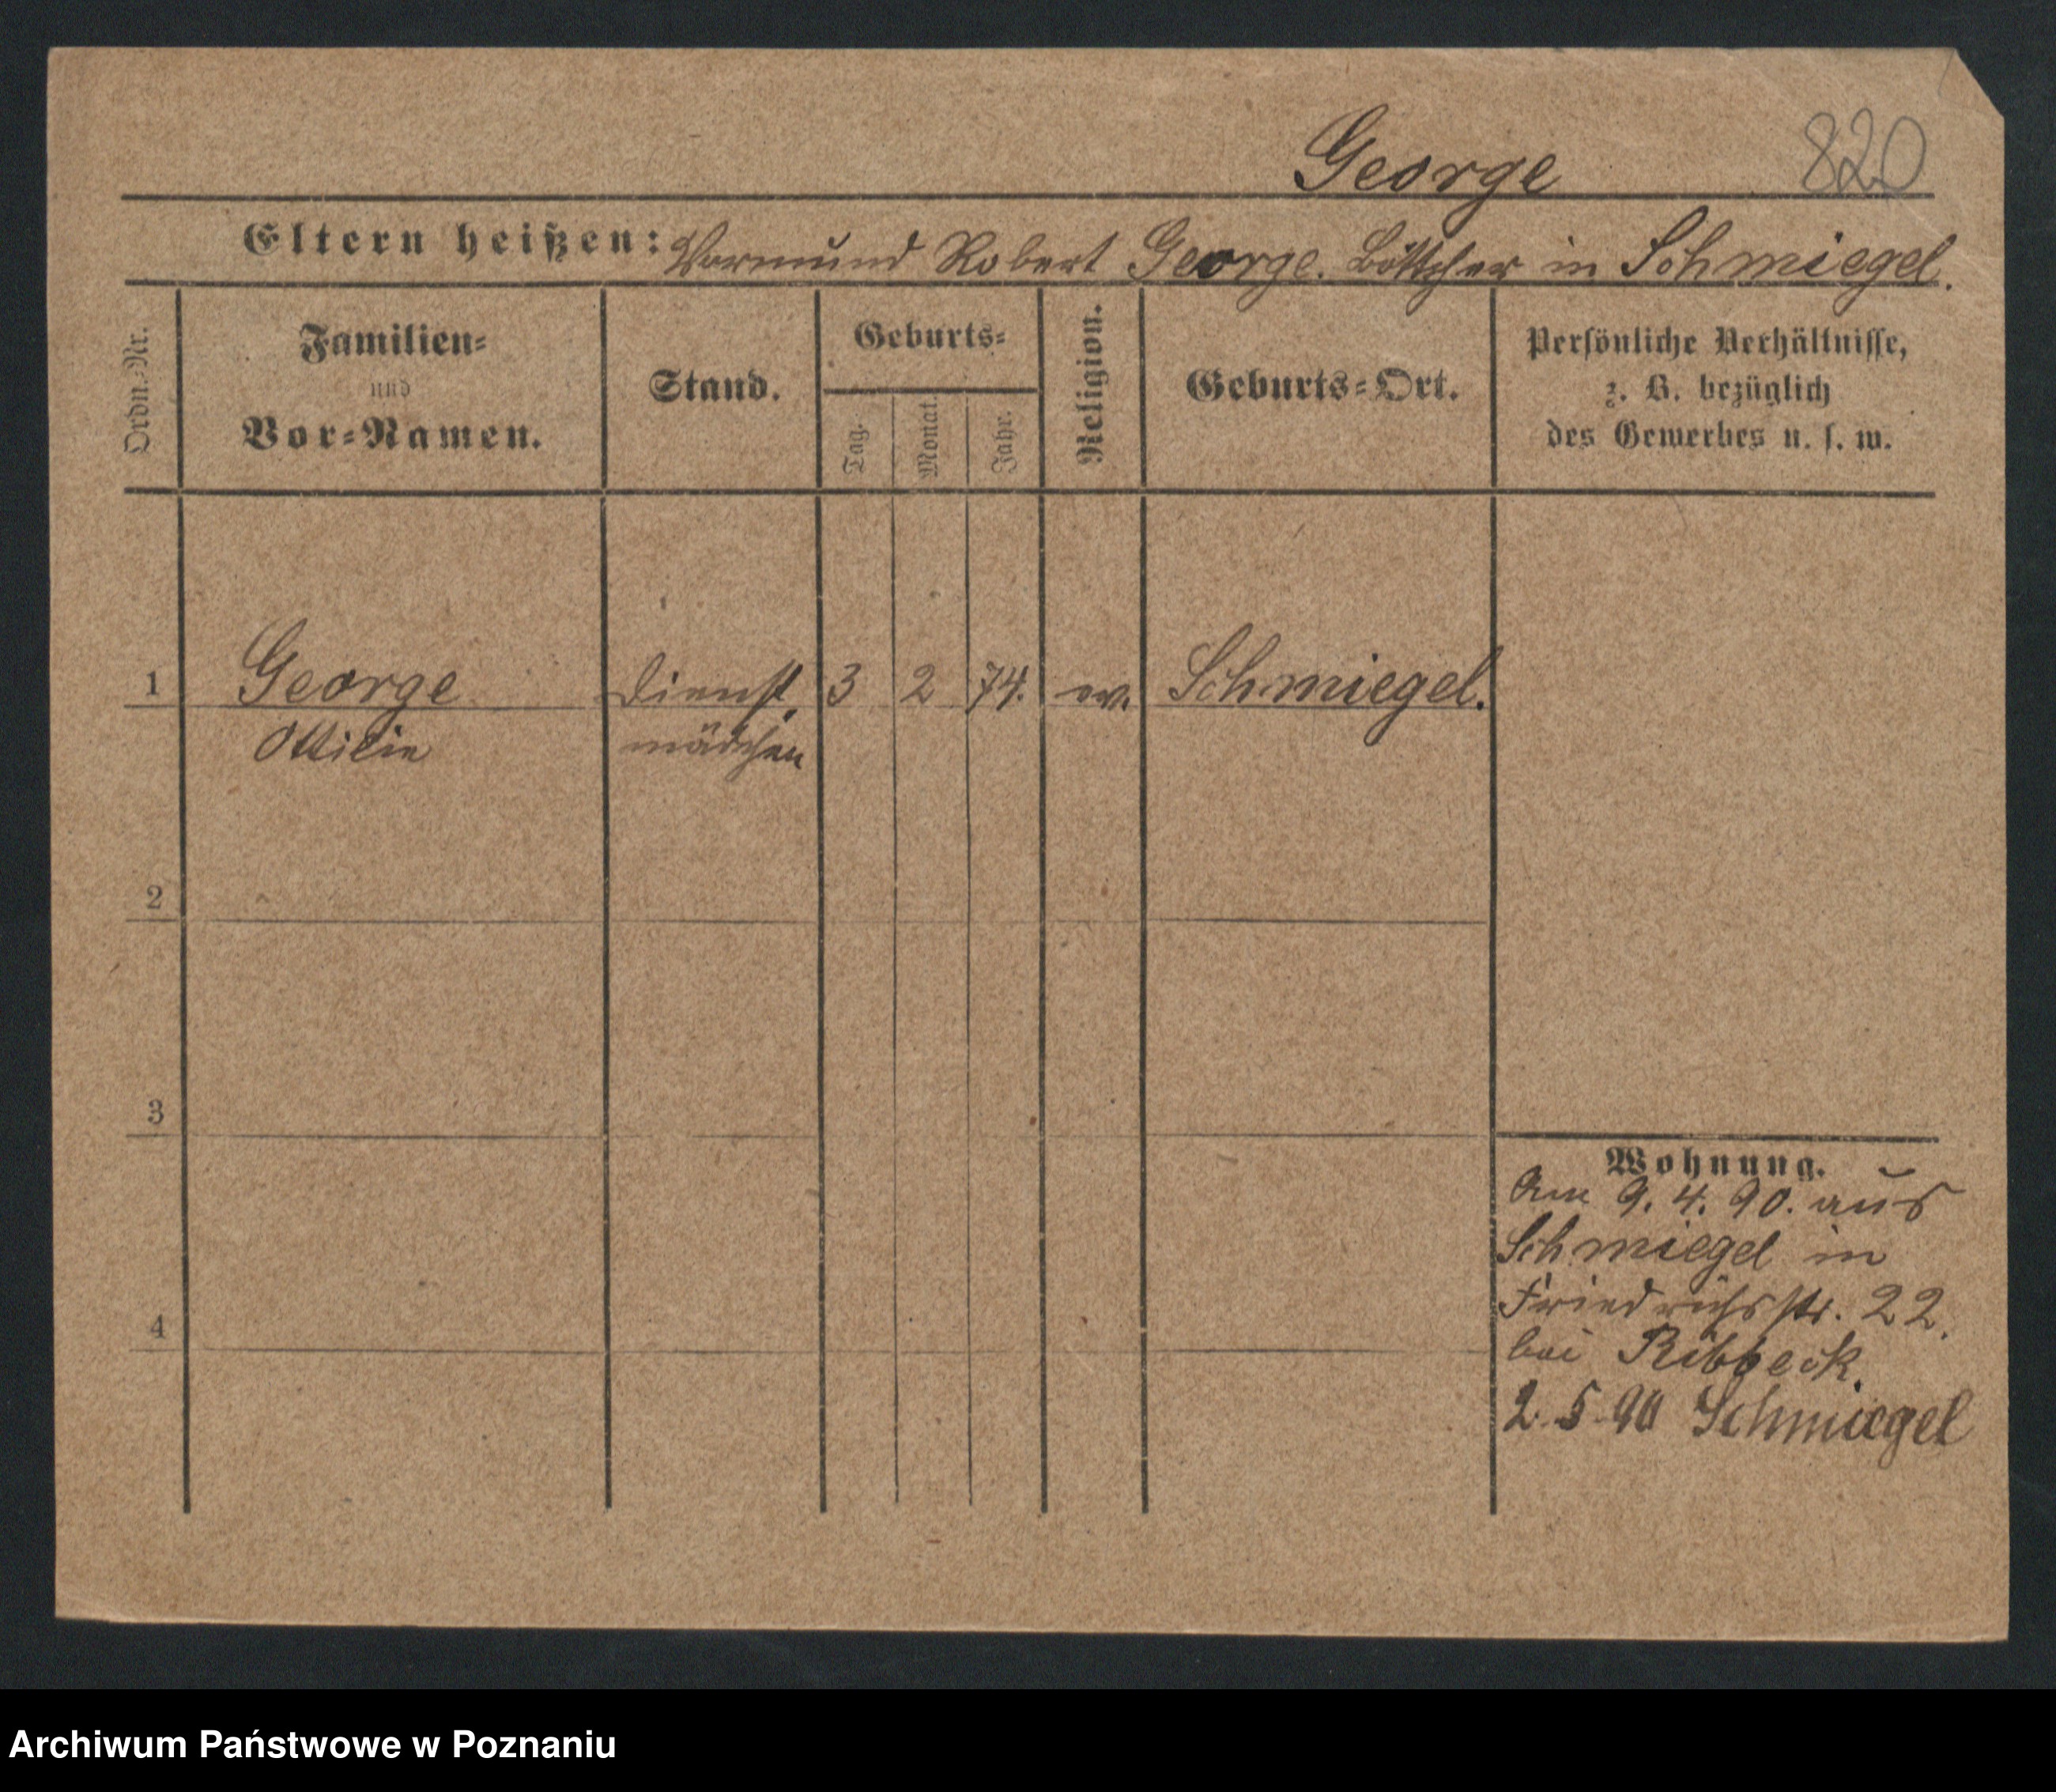 George 820
Eltern heißen: Vormund Robert George. Böttcher in Schmiegel.
Ordn.-Nr.
Familien-
und
Vor-Namen.
Stand.
Geburts-
Tag.
Monat.
Jahr.
Religion.
Geburts-Ort.
Persönliche Verhältnisse,
z. B. bezüglich
des Gewerbes u. s. w.
1 George Dienst 3 2 74. ev. Schmiegel.
Ottilie mädchen
2
3
4
Wohnung.
Am 9. 4. 90. aus
Schmiegel in
Friedrichsstr. 22.
bei Ribbeck.
2. 5. 90 Schmiegel
Archiwum Państwowe w Poznaniu